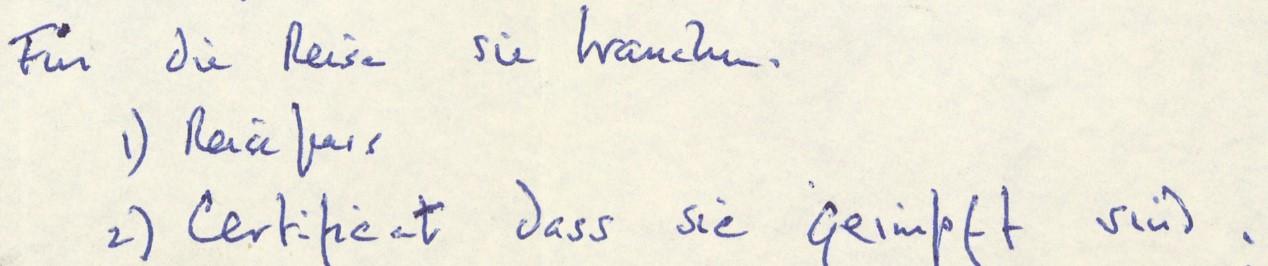 Für die Reise sie brauchen.
1) Reisepass
2) Certificat dass sie geimpft sind.